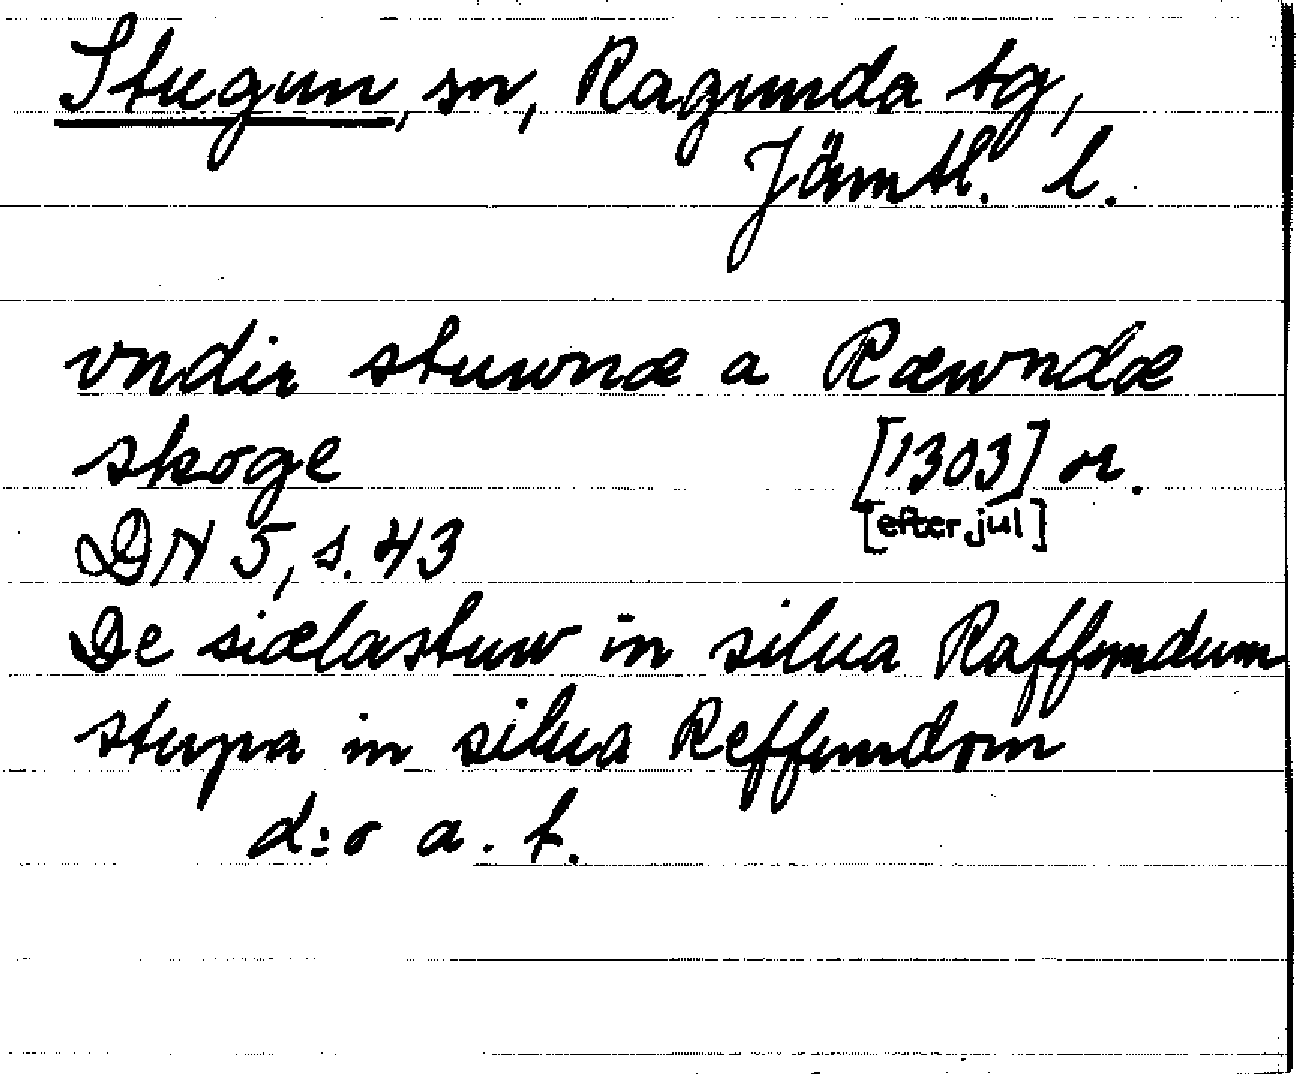 Stugun, sn, Ragunda tg,
Jämtl. l.
vndir stuwnæ a Ræwndæ
skoge [1303] or.
[efter jul]
DN 5, s. 43
De siælastuw in silua Raffundum
stupa in silua Reffundom
d:o a. t.